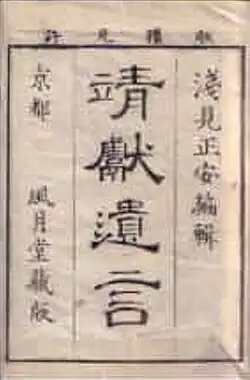 淺見正安編輯
靖獻遺言
京都 風月堂藏版